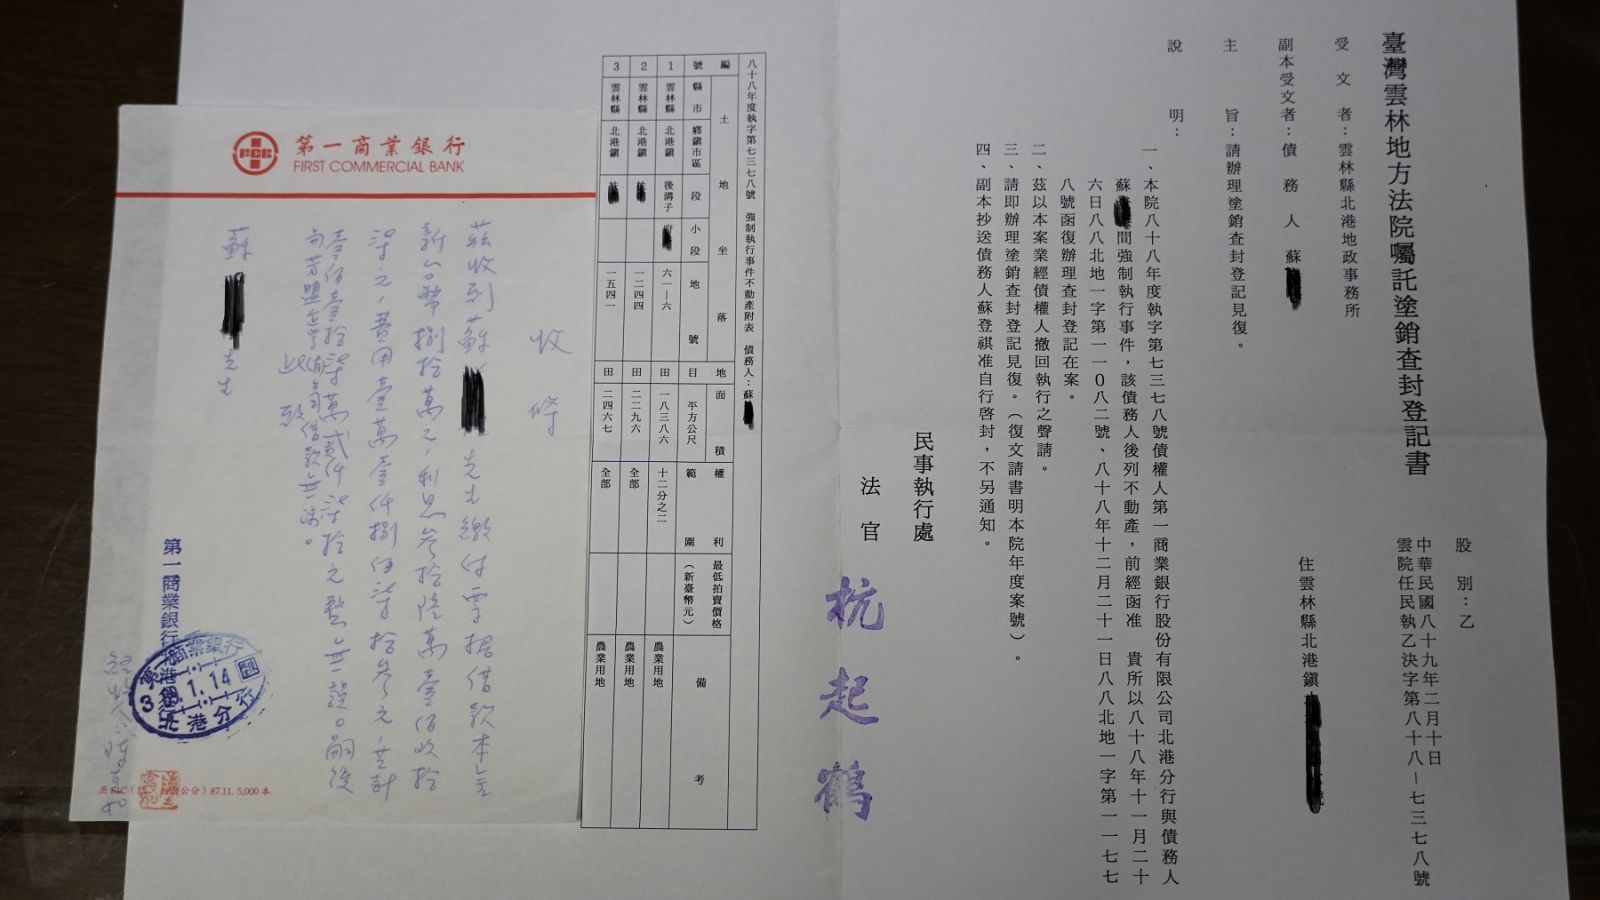 臺灣雲林地方法院囑託塗銷查封登記書
股別：乙
中華民國八十九年二月十日
雲院任民執乙決字第八十八－七三七八號
受文者：雲林縣北港地政事務所
副本受文者：債務人 蘇
住雲林縣北港鎮
主旨：請辦理塗銷查封登記見復。
說明：
一、本院八十八年度執字第七三七八號債權人第一商業銀行股份有限公司北港分行與債務人
蘇 間強制執行事件，該債務人後列不動產，前經函准 貴所以八十八年十一月二十
六日八八北地一字第一一０八二號、八十八年十二月二十一日八八北地一字第一一七七
八號函復辦理查封登記在案。
二、茲以本案業經債權人撤回執行之聲請。
三、請即辦理塗銷查封登記見復。（復文請書明本院年度案號）。
四、副本抄送債務人蘇登祺准自行啓封，不另通知。
民事執行處
法官
杭起鶴
八十八年度執字第七三七八號 強制執行事件不動產附表 債務人：蘇
編號 土地坐落 地目 面積 權利範圍 最低拍賣價格（新臺幣元） 備考
縣市 鄉鎮市區 段 小段 地號 平方公尺
1 雲林縣 北港鎮 後溝子 六一－六 田 一八三八六 十二分之二 農業用地
2 雲林縣 北港鎮 一二四四 田 二二九六 全部 農業用地
3 雲林縣 北港鎮 一五四一 田 二四六七 全部 農業用地
第一商業銀行
FIRST COMMERCIAL BANK
收條
茲收到蘇 先生繳付票據借款本金
新台幣捌拾萬元，利息參拾陸萬壹佰玖拾
柒元，費用壹萬壹仟捌佰柒拾參元，共計
壹佰壹拾柒萬貳仟柒拾元整無誤。嗣後
借款無涉。
此致
蘇 先生
第一商業銀行
第一商業銀行
1.14
北港分行
87.11. 5,000本